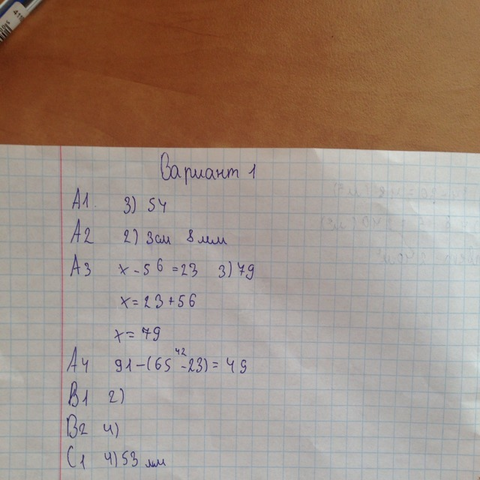 Вариант 1
А1. 3) 54
А2 2) 3см 8 мм
А3 х - 56 = 23 3) 79
х = 23 + 56
х = 79
42
А4 91 - (65 - 23) = 49
В1 2)
В2 4)
С1 4) 53 мм